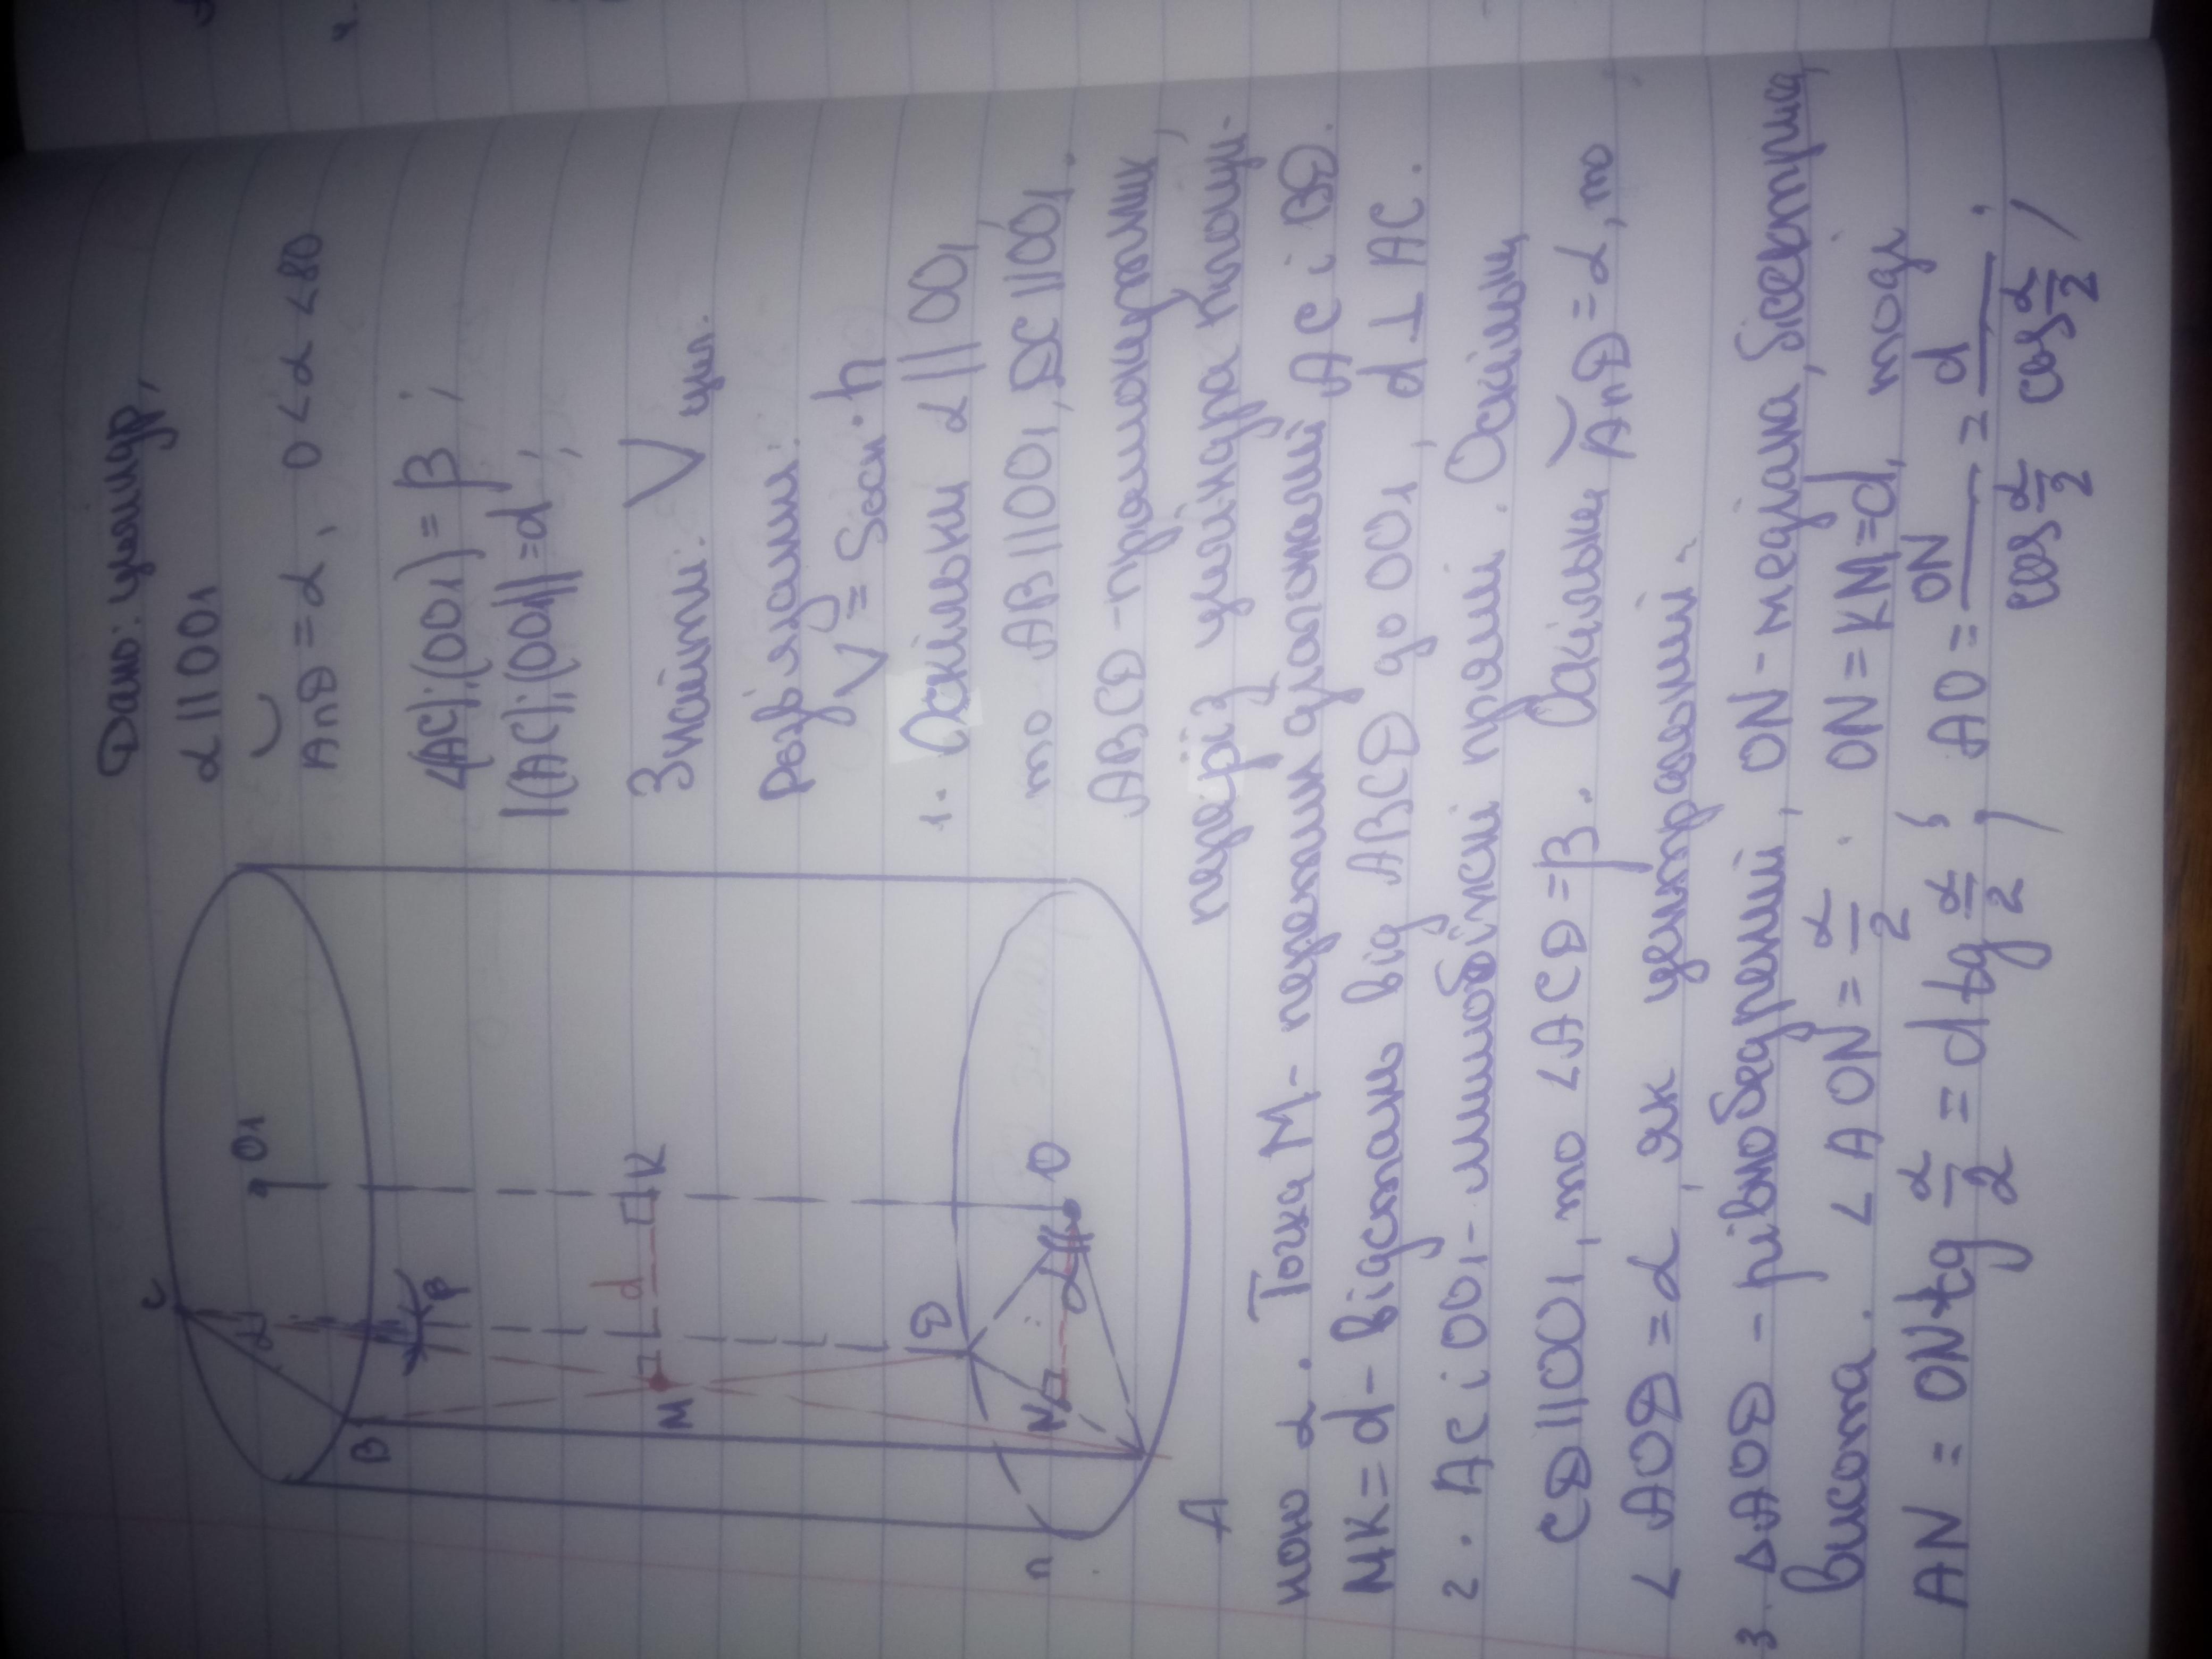 Дано: циліндр,
α || OO₁
AnD = α, 0 < α < 80
∠(AC);(OO₁) = β ;
|(AC);(OO₁)| = d ;
Знайти: V цил.
Розв'язання:
V = Sосн · h
1. Оскільки α || OO₁,
то AB || OO₁, DC || OO₁.
ABCD - прямокутник,
переріз циліндра площи-
ною α. Точка M - перетин діагоналей AC і BD.
MK = d - відстань від ABCD до OO₁, d ⊥ AC.
2. AC і OO₁ - мимобіжні прямі. Оскільки
CD || OO₁, то ∠ACD = β. Оскільки AnD = α, то
∠AOD = α, як центральний.
3. ΔAOD - рівнобедрений, ON - медіана, бісектриса,
висота. ∠AON = α/2. ON = KM = d, тоді
AN = ON tg α/2 = d tg α/2 ; AO = ON / cos α/2 = d / cos α/2 ;
C
O₁
B
α
β
M
d
K
D
N
α
O
n
A